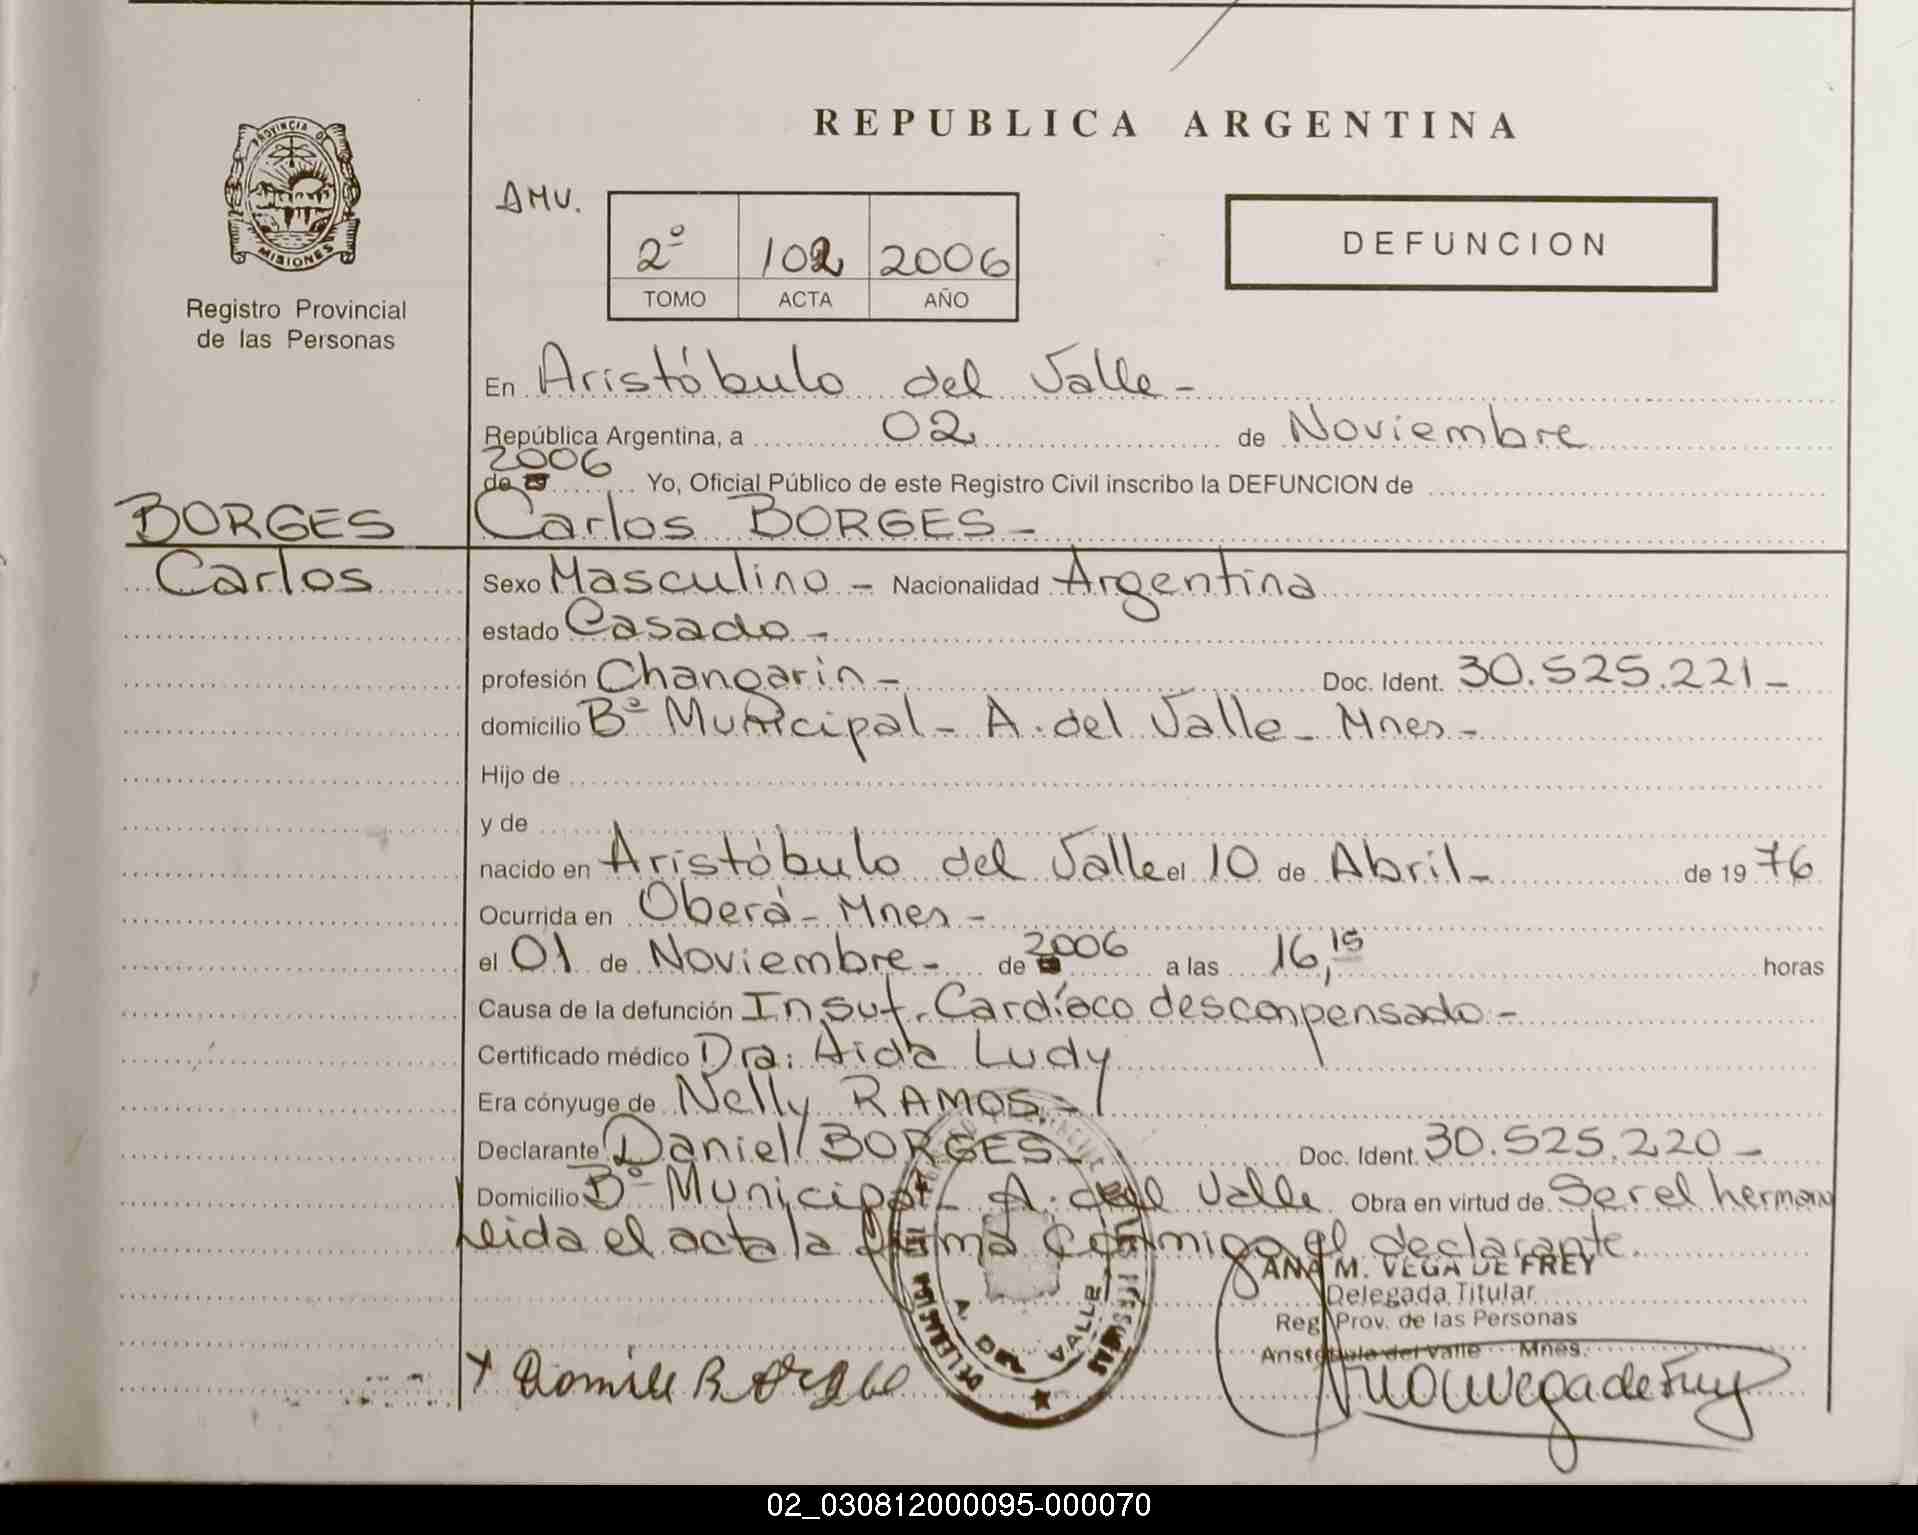 REPUBLICA ARGENTINA
PROVINCIA DE
MISIONES
Registro Provincial
de las Personas
AMV.
2º 102 2006
TOMO ACTA AÑO
DEFUNCION
En Aristóbulo del Valle -
República Argentina, a 02 de Noviembre
2006
de Yo, Oficial Público de este Registro Civil inscribo la DEFUNCION de
BORGES
Carlos
Carlos BORGES -
Sexo Masculino - Nacionalidad Argentina
estado Casado -
profesión Changarin - Doc. Ident. 30.525.221 -
domicilio Bº Municipal - A. del Valle - Mnes -
Hijo de
y de
nacido en Aristóbulo del Valle el 10 de Abril - de 19 76
Ocurrida en Oberá - Mnes -
el 01 de Noviembre - de 2006 a las 16,15 horas
Causa de la defunción Insuf. Cardíaco desconpensado -
Certificado médico Dra: Aida Ludy
Era cónyuge de Nelly RAMOS -
Declarante Daniel BORGES - Doc. Ident. 30.525.220 -
Domicilio Bº Municipal - A. del Valle Obra en virtud de Ser el hermano
Leida el acta la firma conmigo el declarante.
ANA M. VEGA DE FREY
Delegada Titular
Reg. Prov. de las Personas
Aristóbulo del Valle - Mnes.
A. DEL VALLE
02_030812000095-000070